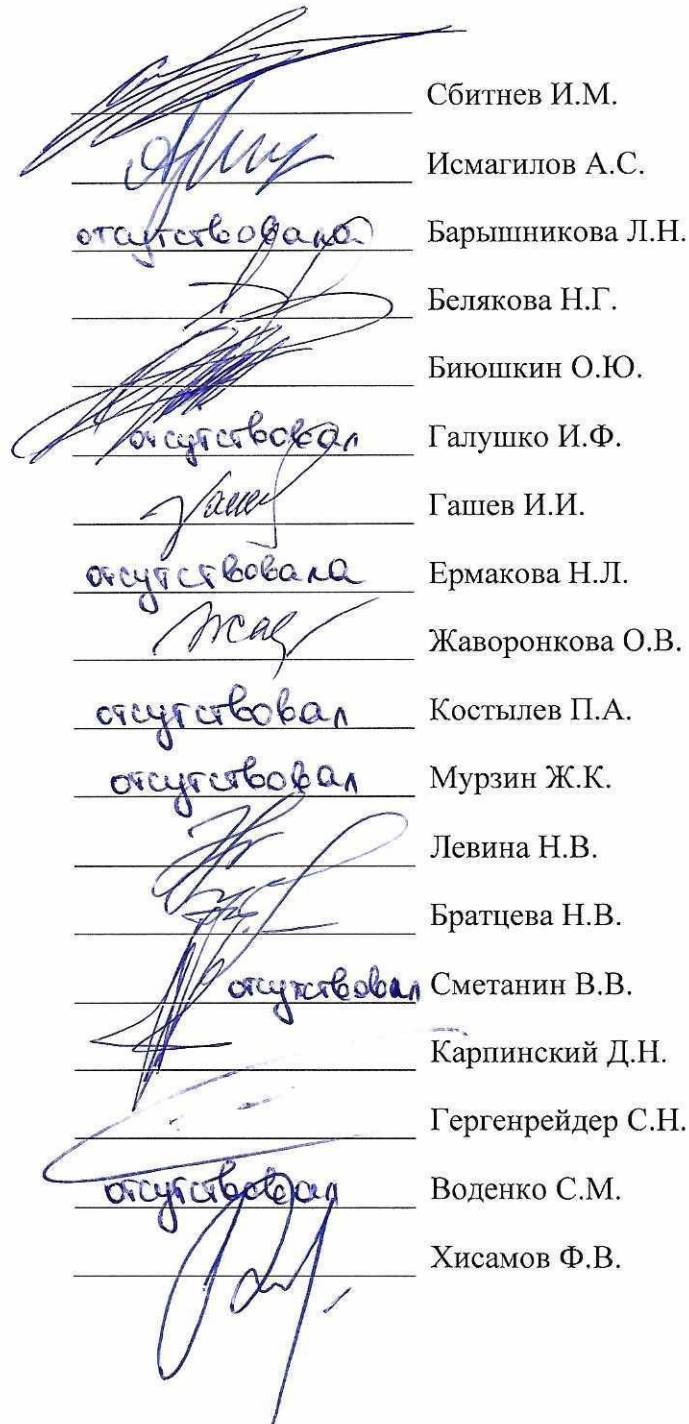 Сбитнев И.М.
Исмагилов А.С.
отсутствовала Барышникова Л.Н.
Белякова Н.Г.
Биюшкин О.Ю.
отсутствовал Галушко И.Ф.
Гашев И.И.
отсутствовала Ермакова Н.Л.
Жаворонкова О.В.
отсутствовал Костылев П.А.
отсутствовал Мурзин Ж.К.
Левина Н.В.
Братцева Н.В.
отсутствовал Сметанин В.В.
Карпинский Д.Н.
Гергенрейдер С.Н.
отсутствовал Воденко С.М.
Хисамов Ф.В.